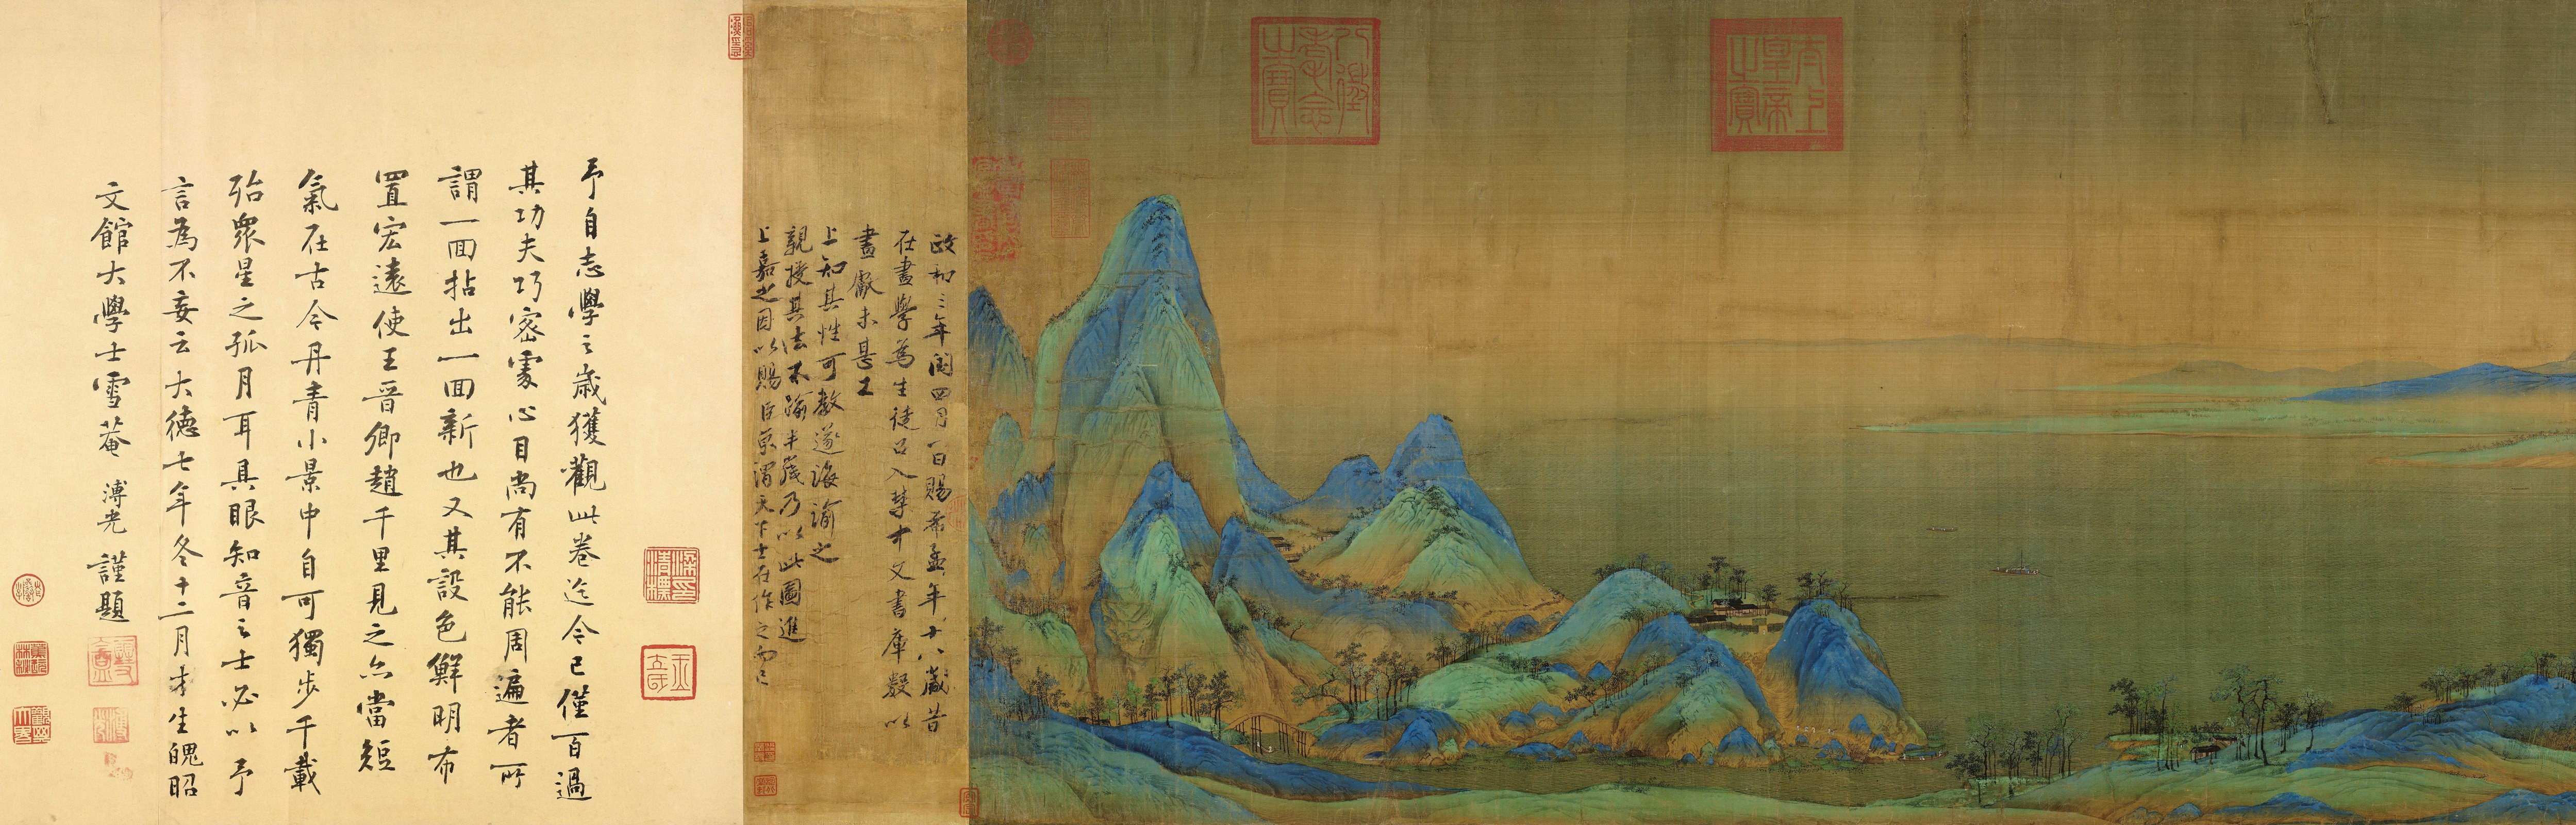 太上皇帝之寶
八徵耄念之寶
政和三年閏四月一日賜希孟年十八歲昔
在畫學為生徒召入禁中文書庫數以
畫獻未甚工
上知其性可教遂誨諭之
親授其法不踰半歲乃以此圖進
上嘉之因以賜臣京謂天下士在作之而已
予自志學之歲獲觀此卷迄今已僅百過
其功夫巧密處心目尚有不能周遍者所
謂一回拈出一回新也又其設色鮮明布
置宏遠使王晉卿趙千里見之亦當短
氣在古今丹青小景中自可獨步千載
殆衆星之孤月耳具眼知音之士必以予
言為不妄云大德七年冬十二月才生魄昭
文館大學士雪菴溥光謹題